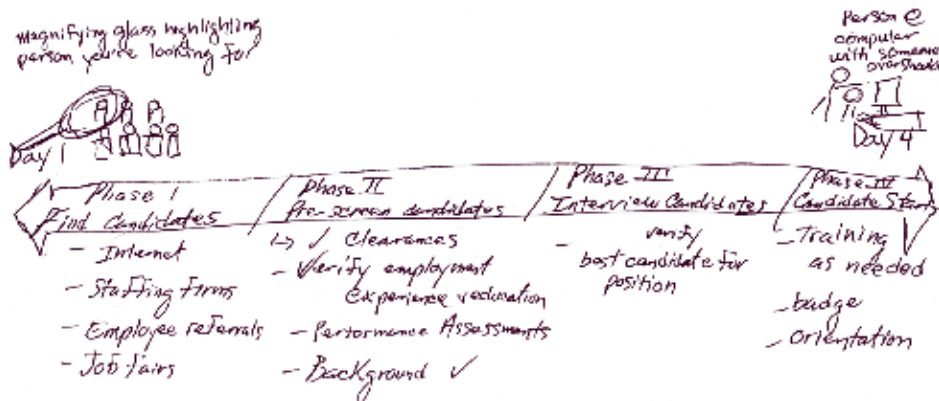 Magnifying glass highlighting
person you're looking for
Person @
computer
with someone
Day 1
Day 4
Phase I
Find Candidates
- Internet
- Staffing firms
- Employee referrals
- Job fairs
Phase II
Pre-screen candidates
↳ ✓ Clearances
- Verify employment
experience
- Performance Assessments
- Background ✓
Phase III
Interview Candidates
- verify
best candidate for
position
Phase IV
Candidate Starts
- Training
as needed
- badge
- orientation